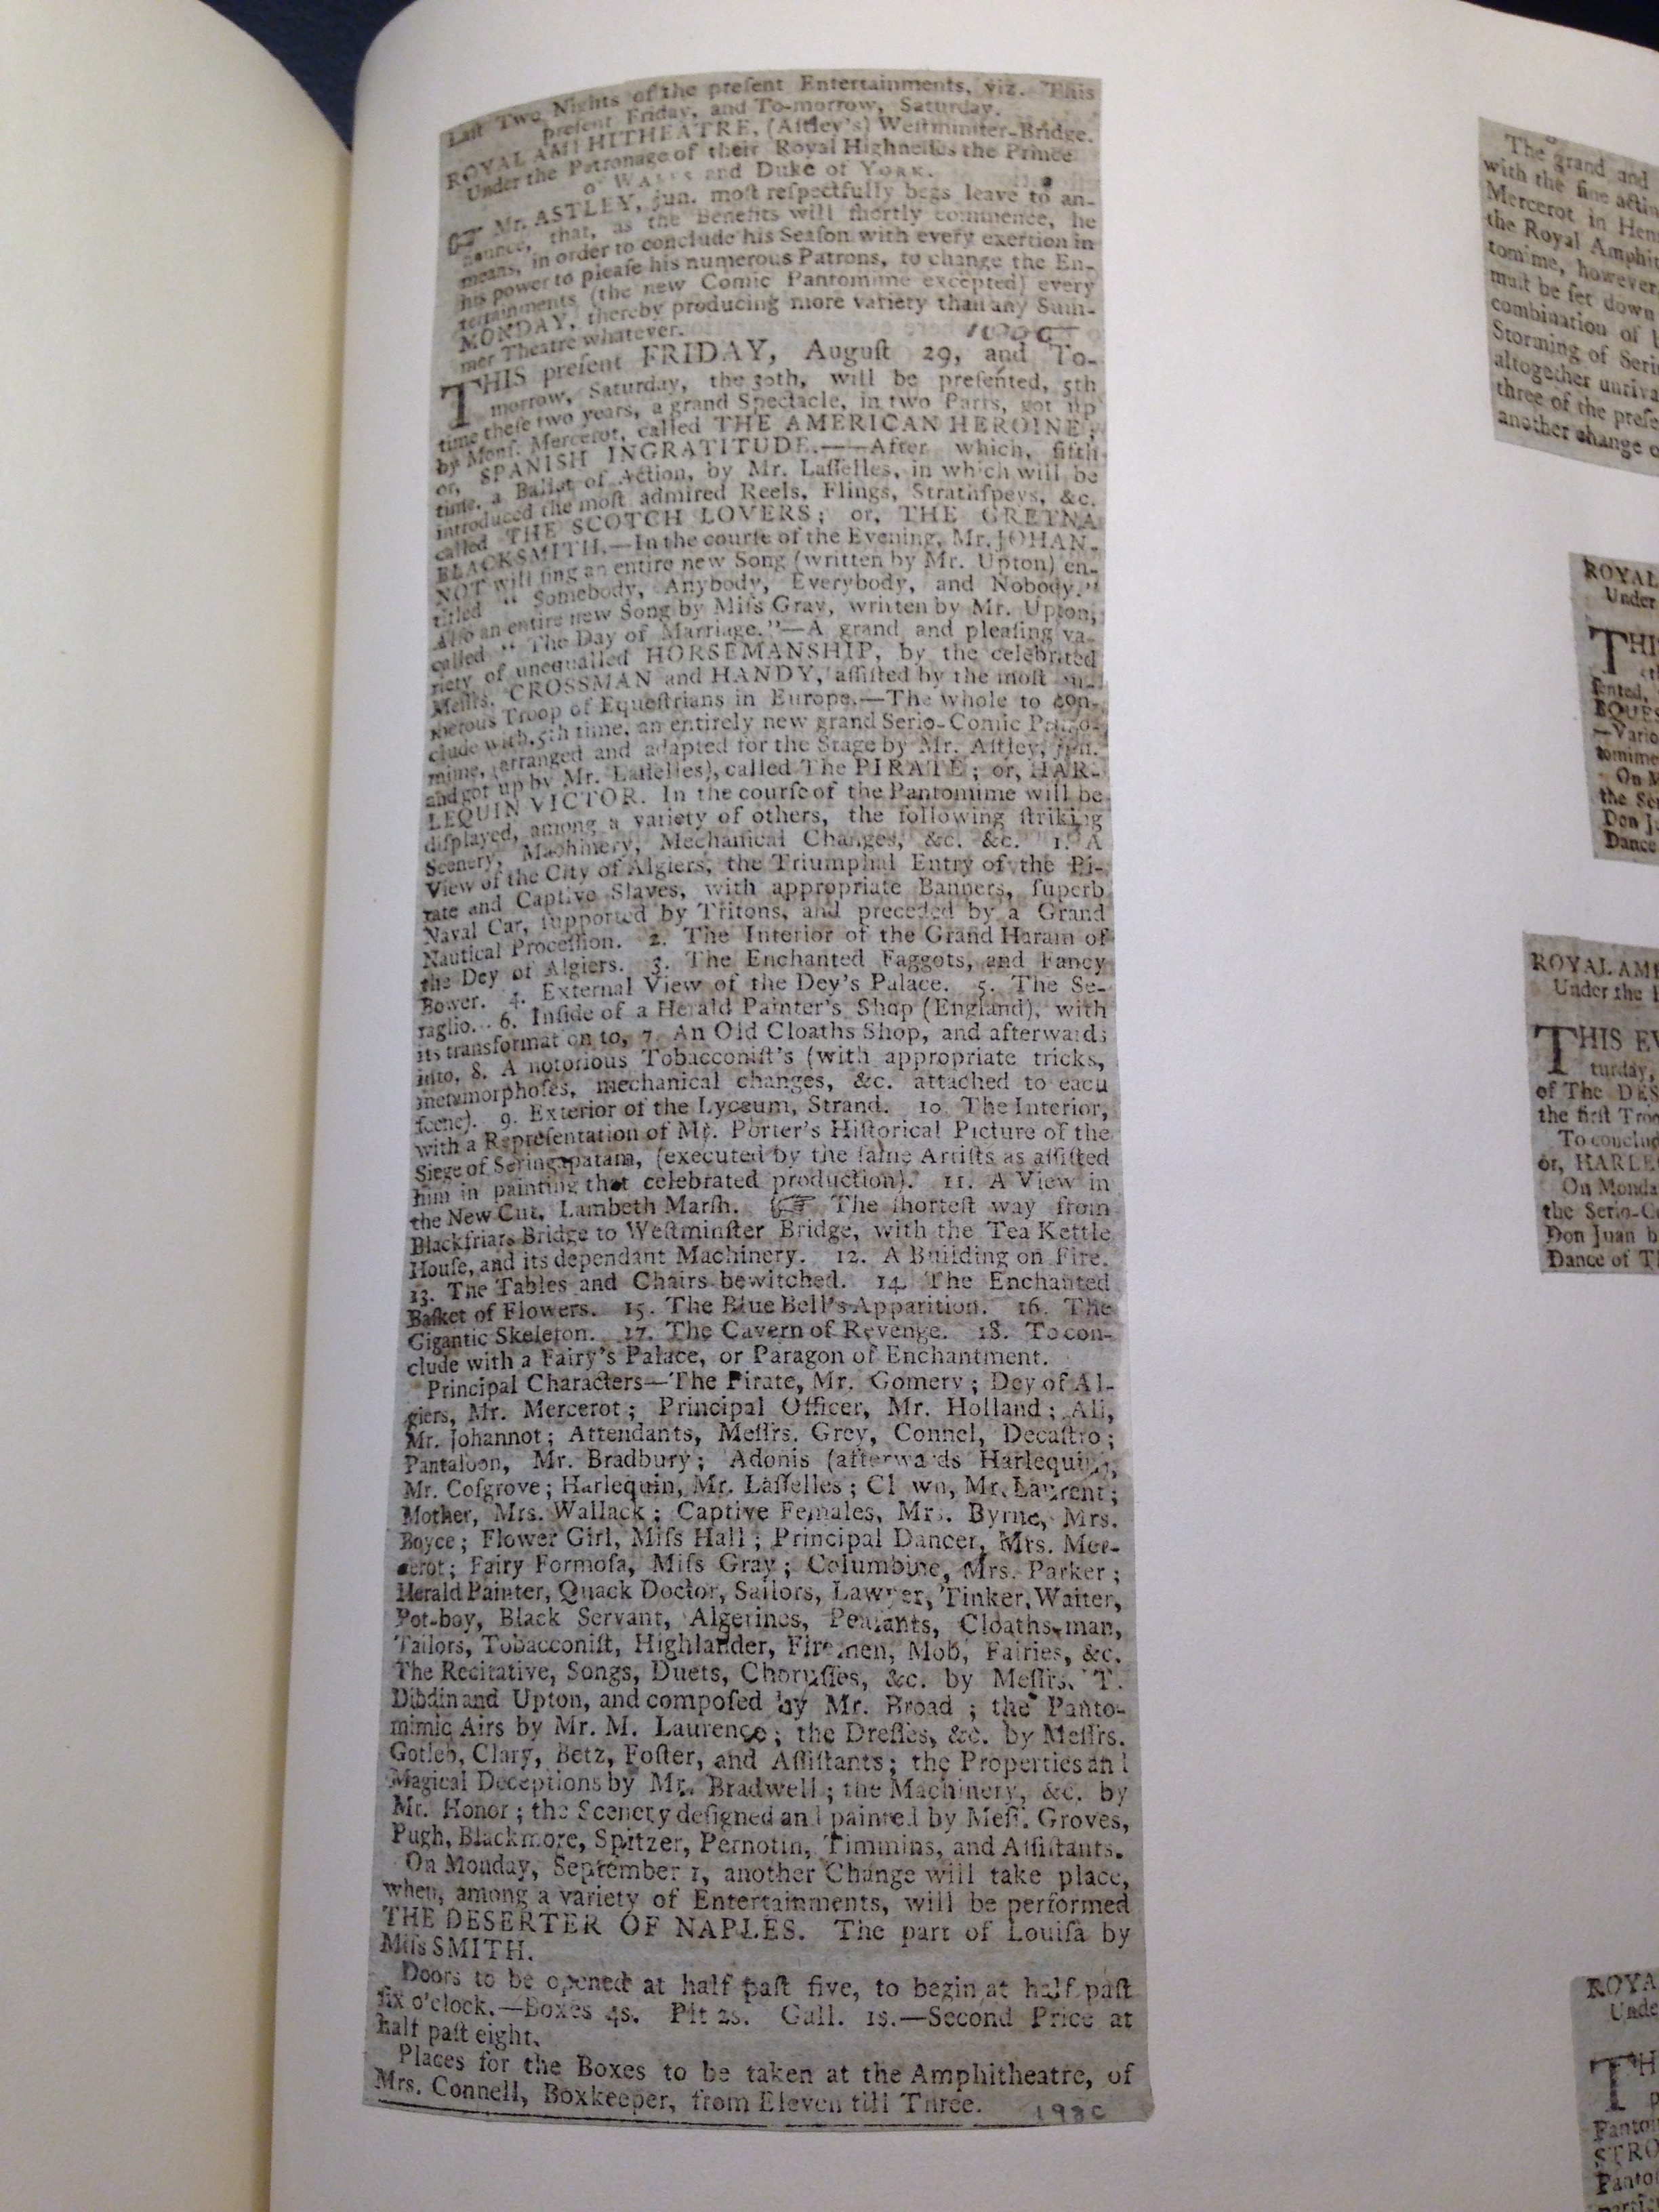 Last Two Nights of the preſent Entertainments, viz. This
preſent Friday, and To-morrow, Saturday.
ROYAL AMPHITHEATRE, (Aſtley's) Weſtminſter-Bridge.
Under the Patronage of their Royal Highneſſes the Prince
of WALES and Duke of YORK.
☞ Mr. ASTLEY, jun. moſt reſpectfully begs leave to an-
nounce, that, as the Benefits will ſhortly commence, he
means, in order to conclude his Seaſon with every exertion in
his power to pleaſe his numerous Patrons, to change the En-
tertainments (the new Comic Pantomime excepted) every
MONDAY, thereby producing more variety than any Sum-
mer Theatre whatever.
THIS preſent FRIDAY, Auguſt 29, and To-
morrow, Saturday, the 30th, will be preſented, 5th
time theſe two years, a grand Spectacle, in two Parts, got up
by Monſ. Mercerot, called THE AMERICAN HEROINE;
or, SPANISH INGRATITUDE.——After which, fifth
time, a Ballet of Action, by Mr. Laſſelles, in which will be
introduced the moſt admired Reels, Flings, Strathſpeys, &c.
called THE SCOTCH LOVERS; or, THE GRETNA
BLACKSMITH.—In the courſe of the Evening, Mr. JOHAN-
NOT will ſing an entire new Song (written by Mr. Upton) en-
titled "Somebody, Anybody, Everybody, and Nobody."
Alſo an entire new Song by Miſs Gray, written by Mr. Upton,
called "The Day of Marriage."—A grand and pleaſing va-
riety of unequalled HORSEMANSHIP, by the celebrated
Meſſrs. CROSSMAN and HANDY, aſſiſted by the moſt nu-
merous Troop of Equeſtrians in Europe.—The whole to con-
clude with, 5th time, an entirely new grand Serio-Comic Panto-
mime, (arranged and adapted for the Stage by Mr. Aſtley, jun.
and got up by Mr. Laſſelles), called The PIRATE; or, HAR-
LEQUIN VICTOR. In the courſe of the Pantomime will be
diſplayed, among a variety of others, the following ſtriking
Scenery, Machinery, Mechanical Changes, &c. &c. 1. A
View of the City of Algiers, the Triumphal Entry of the Pi-
rate and Captive Slaves, with appropriate Banners, ſuperb
Naval Car, ſupported by Tritons, and preceded by a Grand
Nautical Proceſſion. 2. The Interior of the Grand Haram of
the Dey of Algiers. 3. The Enchanted Faggots, and Fancy
Bower. 4. External View of the Dey's Palace. 5. The Se-
raglio. 6. Inſide of a Herald Painter's Shop (England), with
its transformation to, 7. An Old Cloaths Shop, and afterwards
into, 8. A notorious Tobacconiſt's (with appropriate tricks,
metamorphoſes, mechanical changes, &c. attached to each
ſcene). 9. Exterior of the Lyceum, Strand. 10 The Interior,
with a Repreſentation of Mr. Porter's Hiſtorical Picture of the
Siege of Seringapatam, (executed by the ſame Artiſts as aſſiſted
him in painting that celebrated production). 11. A View in
the New Cut, Lambeth Marſh. (☞ The ſhorteſt way from
Blackfriars Bridge to Weſtminſter Bridge, with the Tea Kettle
Houſe, and its dependant Machinery. 12. A Building on Fire.
13. The Tables and Chairs bewitched. 14. The Enchanted
Baſket of Flowers. 15. The Blue Bell's Apparition. 16. The
Gigantic Skeleton. 17. The Cavern of Revenge. 18. To con-
clude with a Fairy's Palace, or Paragon of Enchantment.
Principal Characters—The Pirate, Mr. Gomery; Dey of Al-
giers, Mr. Mercerot; Principal Officer, Mr. Holland; Ali,
Mr. Johannot; Attendants, Meſſrs. Grey, Connel, Decaſtro;
Pantaloon, Mr. Bradbury; Adonis (afterwards Harlequin),
Mr. Coſgrove; Harlequin, Mr. Laſſelles; Cl wn, Mr. Laurent;
Mother, Mrs. Wallack; Captive Females, Mrs. Byrne, Mrs.
Boyce; Flower Girl, Miſs Hall; Principal Dancer, Mrs. Mer-
cerot; Fairy Formoſa, Miſs Gray; Columbine, Mrs. Parker;
Herald Painter, Quack Doctor, Sailors, Lawyer, Tinker, Waiter,
Pot-boy, Black Servant, Algerines, Peaſants, Cloaths-man,
Tailors, Tobacconiſt, Highlander, Firemen, Mob, Fairies, &c.
The Recitative, Songs, Duets, Choruſſes, &c. by Meſſrs. T.
Dibdin and Upton, and compoſed by Mr. Broad; the Panto-
mimic Airs by Mr. M. Laurence; the Dreſſes, &c. by Meſſrs.
Gotleb, Clary, Betz, Foſter, and Aſſiſtants; the Properties and
Magical Deceptions by Mr. Bradwell; the Machinery, &c. by
Mr. Honor; the Scenery deſigned and painted by Meſſ. Groves,
Pugh, Blackmore, Spitzer, Pernotin, Timmins, and Aſſiſtants.
On Monday, September 1, another Change will take place,
when, among a variety of Entertainments, will be performed
THE DESERTER OF NAPLES. The part of Louiſa by
Miſs SMITH.
Doors to be opened at half paſt five, to begin at half paſt
ſix o'clock.—Boxes 4s. Pit 2s. Gall. 1s.—Second Price at
half paſt eight.
Places for the Boxes to be taken at the Amphitheatre, of
Mrs. Connell, Boxkeeper, from Eleven till Three.
The grand and
with the fine
Mercerot in
the Royal
tomime, however,
muſt be ſet down
combination of
Storming of
altogether
three of the
another change
ROYAL
Under
THIS
ROYAL
Under the
THIS
turday,
of The
the firſt
To
or,
On
the
Don Juan
Dance of